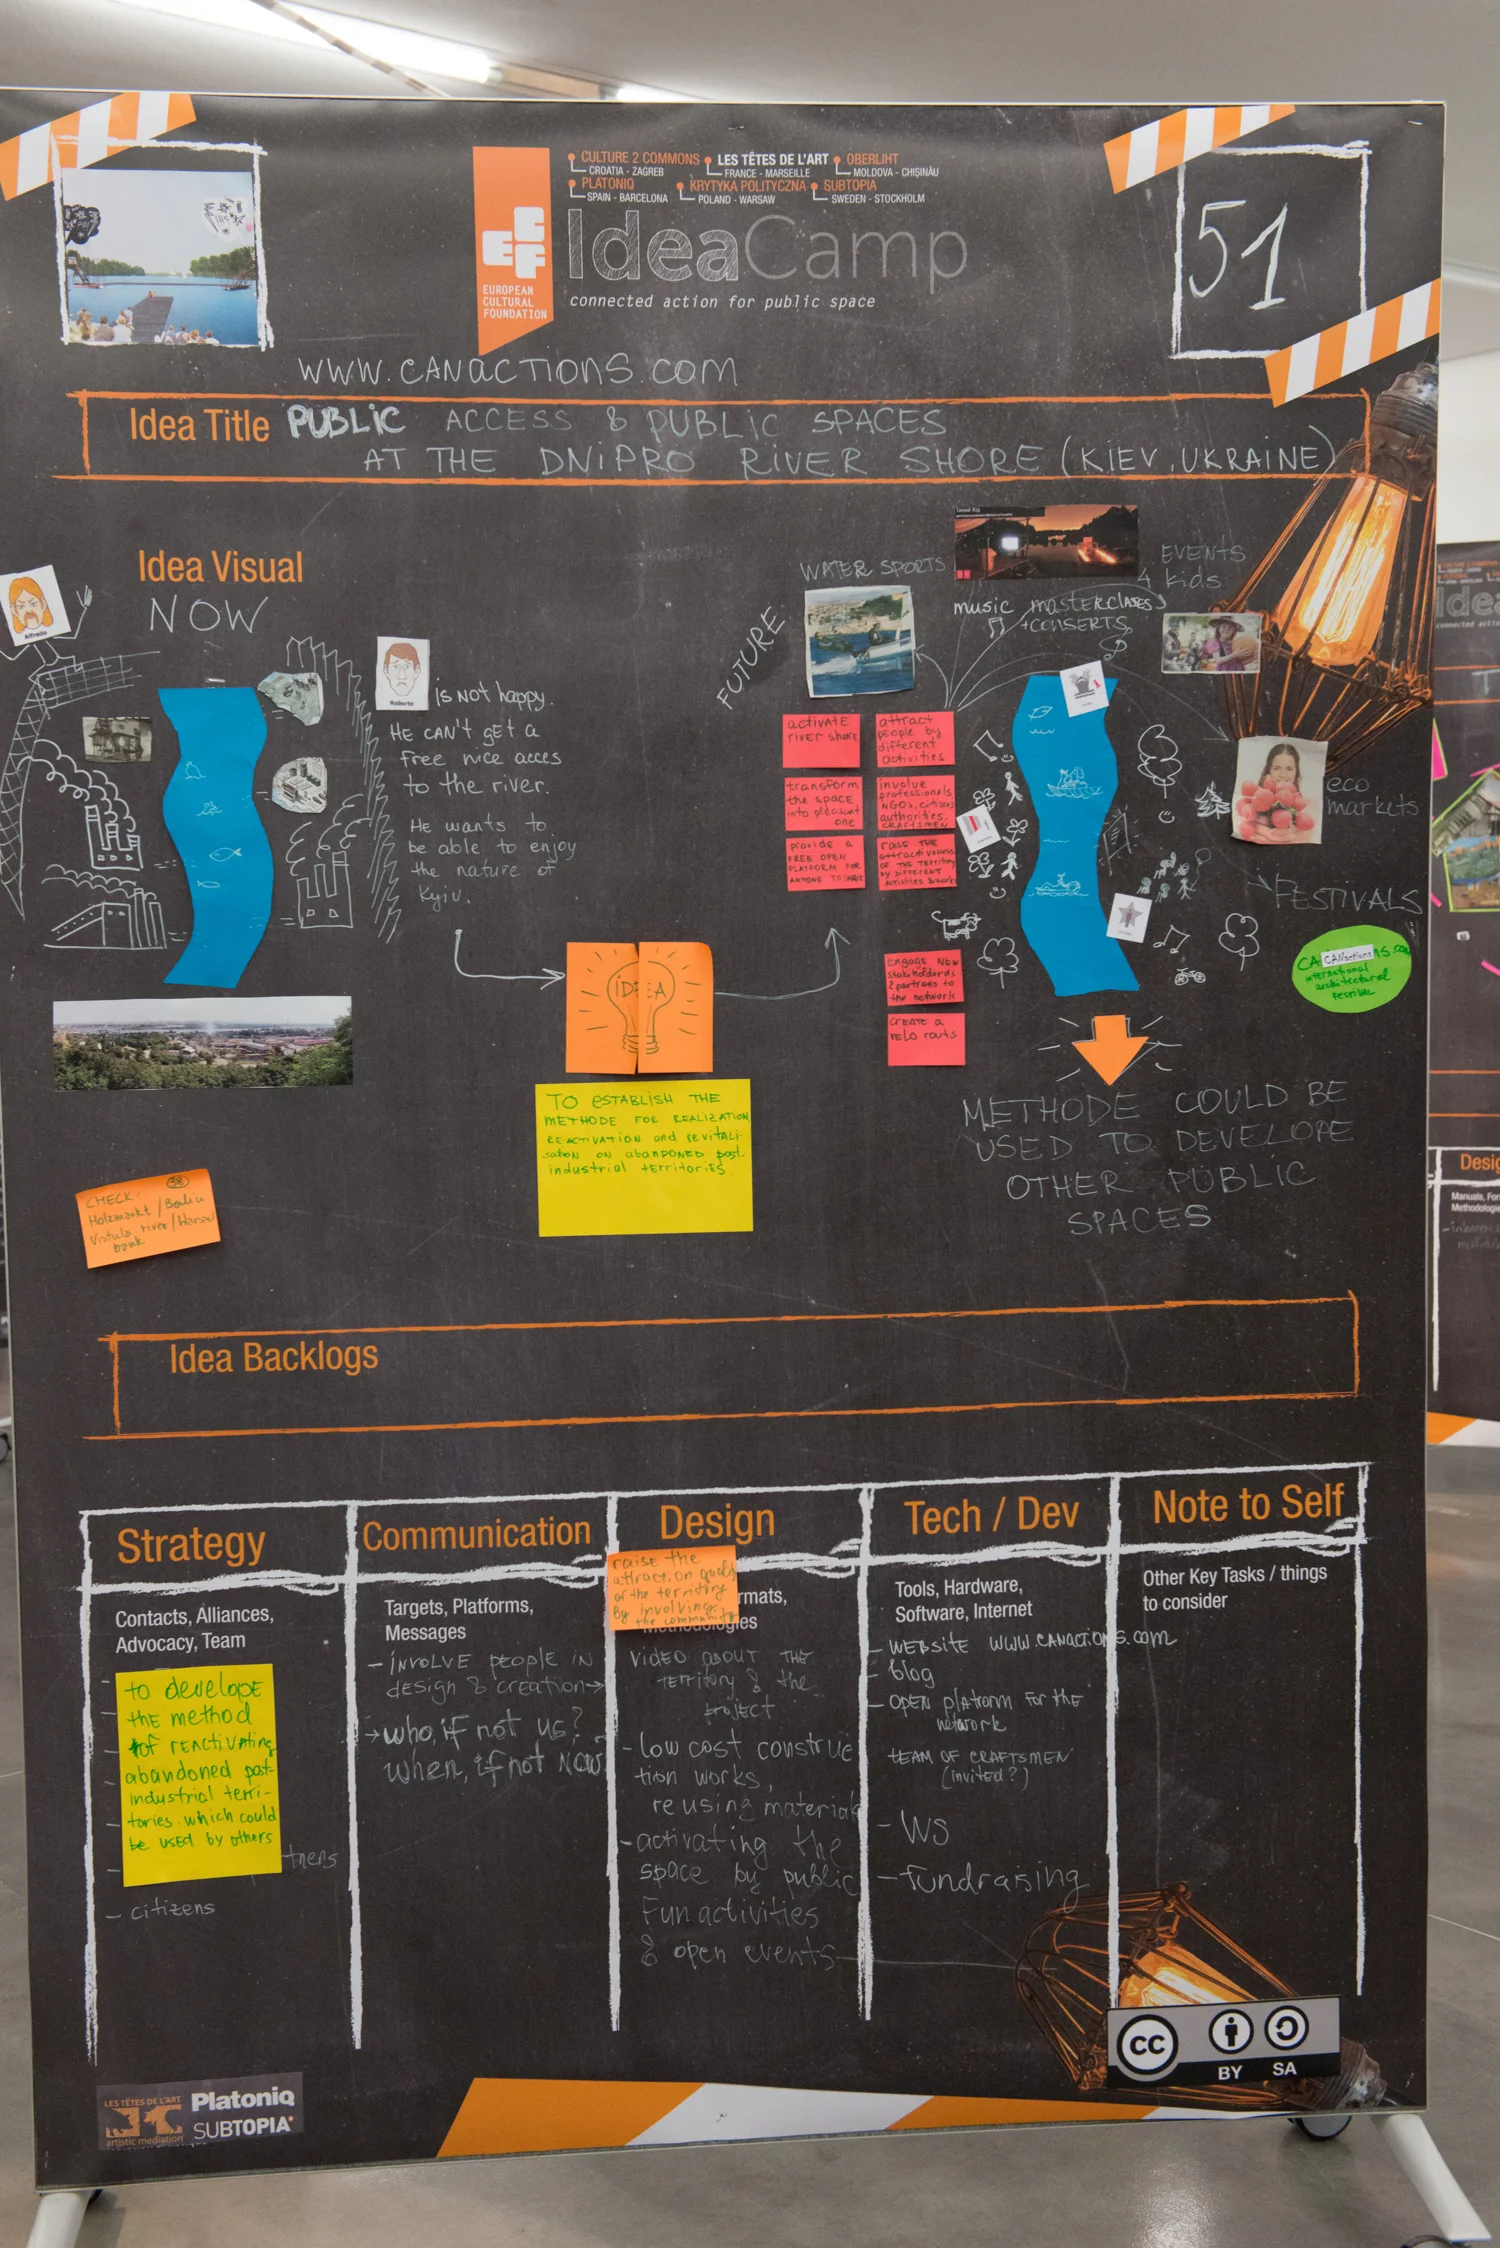 CULTURE 2 COMMONS
CROATIA - ZAGREB
LES TÊTES DE L'ART
FRANCE - MARSEILLE
OBERLIHT
MOLDOVA - CHIȘINĂU
PLATONIQ
SPAIN - BARCELONA
KRYTYKA POLITYCZNA
POLAND - WARSAW
SUBTOPIA
SWEDEN - STOCKHOLM
ECF
EUROPEAN
CULTURAL
FOUNDATION
IdeaCamp
connected action for public space
51
WWW.CANACTIONS.COM
Idea Title PUBLIC ACCESS & PUBLIC SPACES
AT THE DNIPRO RIVER SHORE (KIEV, UKRAINE)
Idea Visual
NOW
Alfredo
Roberto
is not happy.
HE CAN'T GET A
free nice acces
to the river.
He wants to
be able to enjoy
the nature of
Kyiv.
FUTURE
WATER SPORTS
music masterclasses
+CONSERTS
EVENTS
4 kids
eco
markets
FESTIVALS
CANactions
international
architectural
festival
activate
river shore
attract
people by
different
activities
transform
the space
into pleasant
one
involve
professionals
NGOs, citizens
authorities,
CRAFTSMEN
provide a
FREE OPEN
PLATFORM FOR
ANYONE TO
RAISE THE
OF THE TERRITORY
BY DIFFERENT
engage new
stakeholders
& partners to
the network
CREATE A
velo routs
IDEA
TO ESTABLISH THE
METHODE FOR REALIZATION,
REACTIVATION and revitali-
sation ON abandoned post-
industrial territories.
METHODE COULD BE
USED TO DEVELOPE
OTHER PUBLIC
SPACES
CHECK: 38
Holzmarkt / Berlin
Vistula river / Warsaw
bank
Idea Backlogs
Strategy
Contacts, Alliances,
Advocacy, Team
to develope
the method
of reactivating
abandoned post-
industrial terri-
tories. which could
be used by others
tners
- citizens
Communication
Targets, Platforms,
Messages
- INVOLVE PEOPLE IN
design & creation →
→ who, if not us?
when, if not now
Design
raise the
attraction
of the territory
By involving
the community
rmats,
Methodologies
VIDEO ABOUT THE
territory & the
project
- low cost construc
tion works,
reusing materials
- activating the
space by public
Fun activities
& open events
Tech / Dev
Tools, Hardware,
Software, Internet
- WEBSITE WWW.CANACTIONS.COM
- blog
- OPEN platform for the
network
TEAM OF CRAFTSMEN
(invited?)
- WS
- fundraising
Note to Self
Other Key Tasks / things
to consider
LES TÊTES DE L'ART
artistic mediation
Platoniq
SUBTOPIA
CC
BY SA
Idea
connected action
Desig
Manuals, For
Methodologie